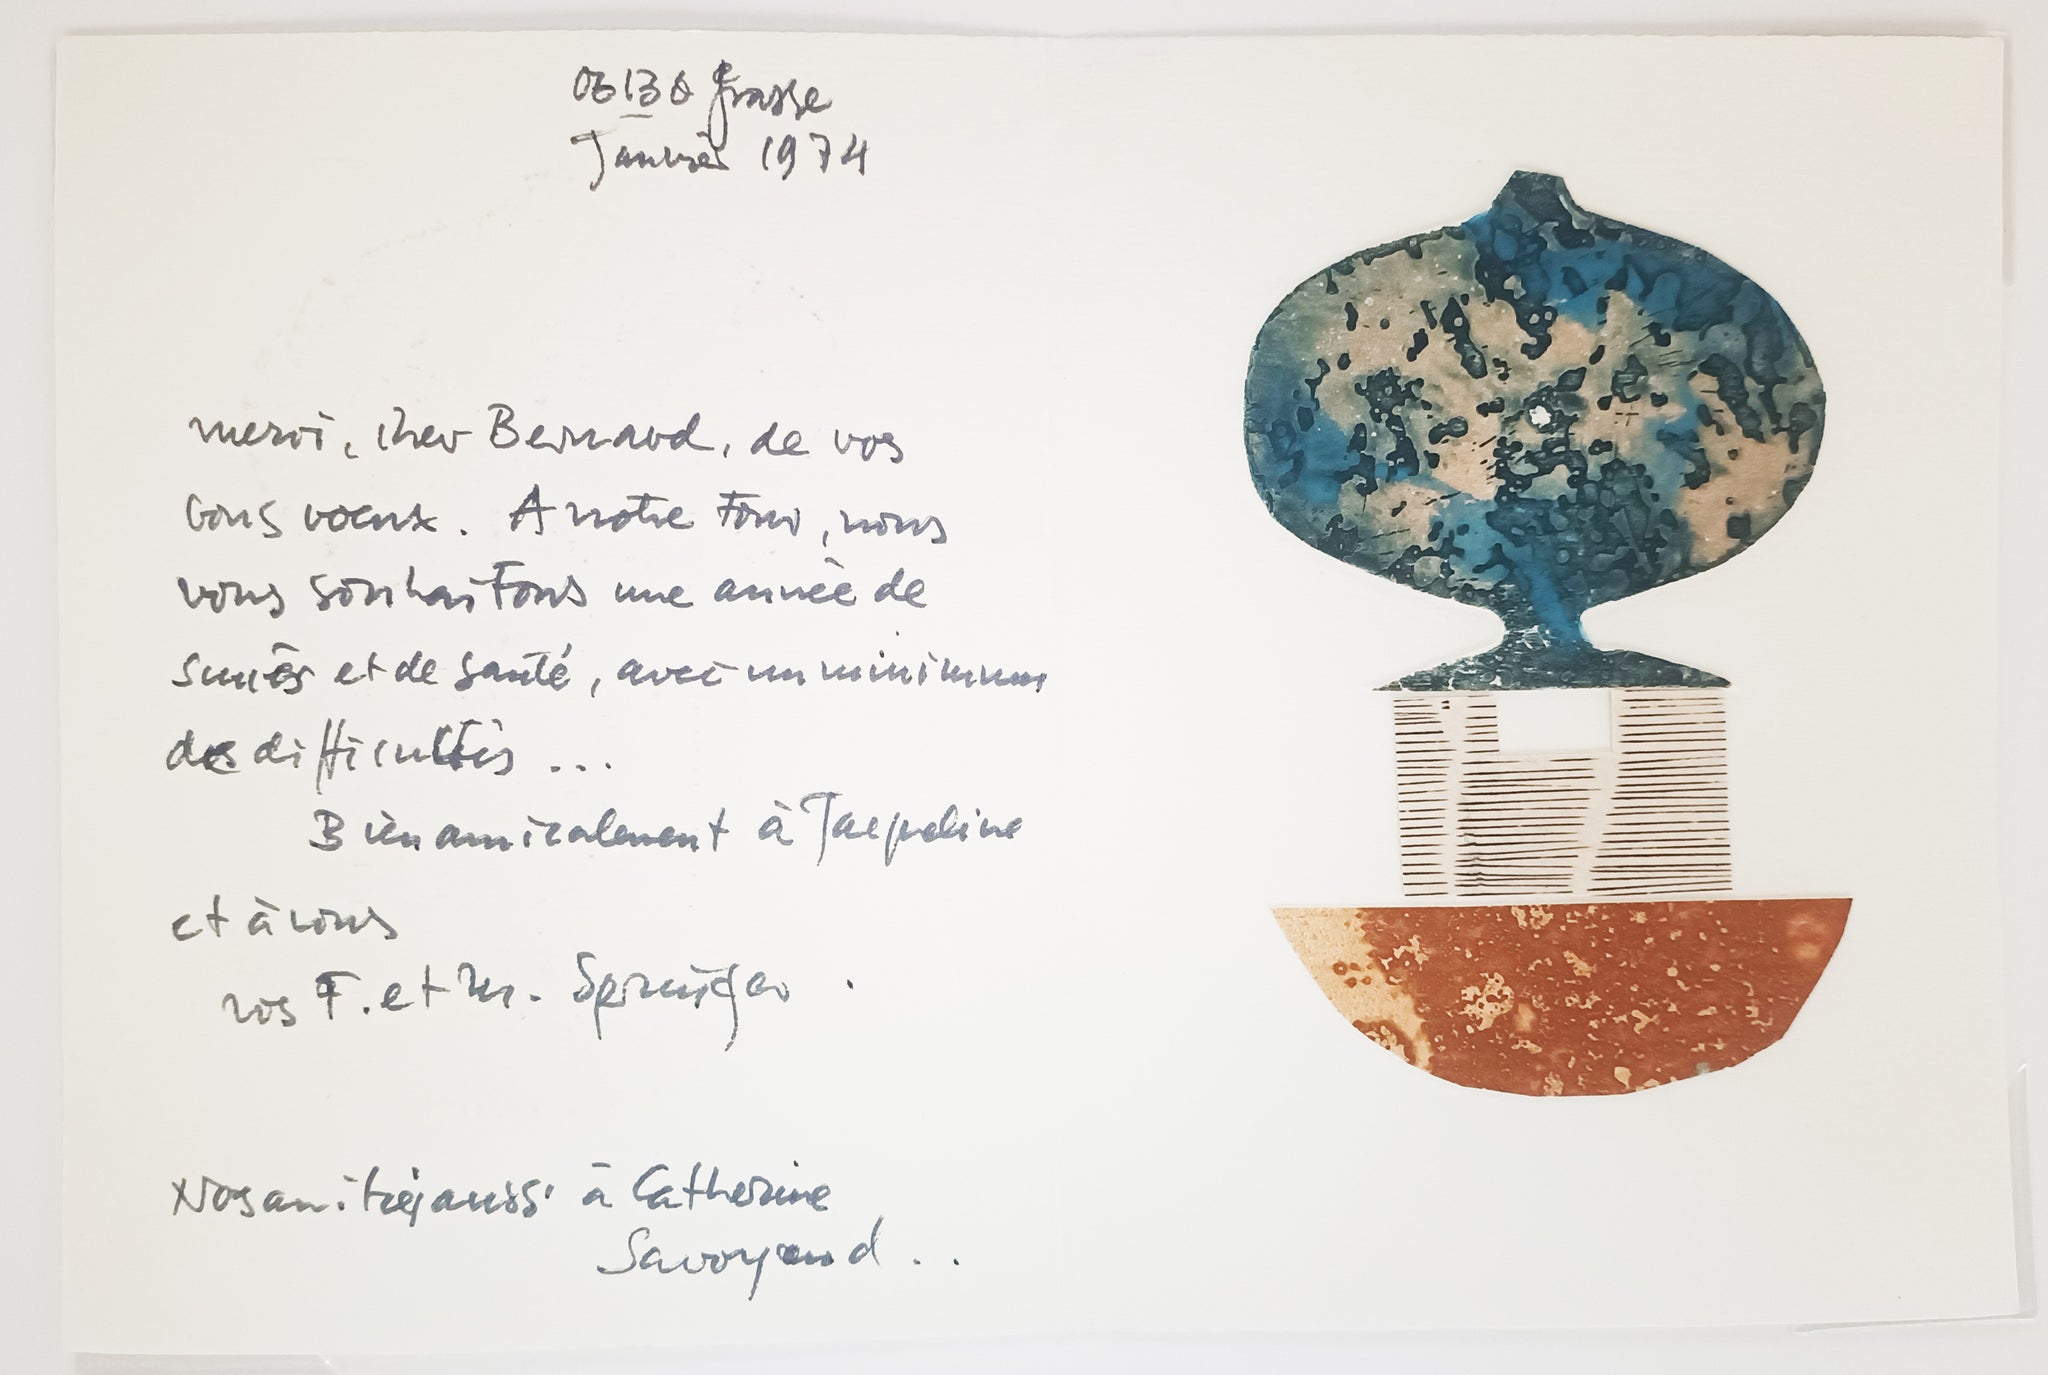 06130 Grasse
Janvier 1974
merci, cher Bernard, de vos
bons voeux. A notre tour, nous
vous souhaitons une année de
succès et de santé, avec un minimum
de difficultés ...
Bien amicalement à Jacqueline
et à vous
vos F. et M. Springer.
Nos amitiés aussi à Catherine
Savoyand ..